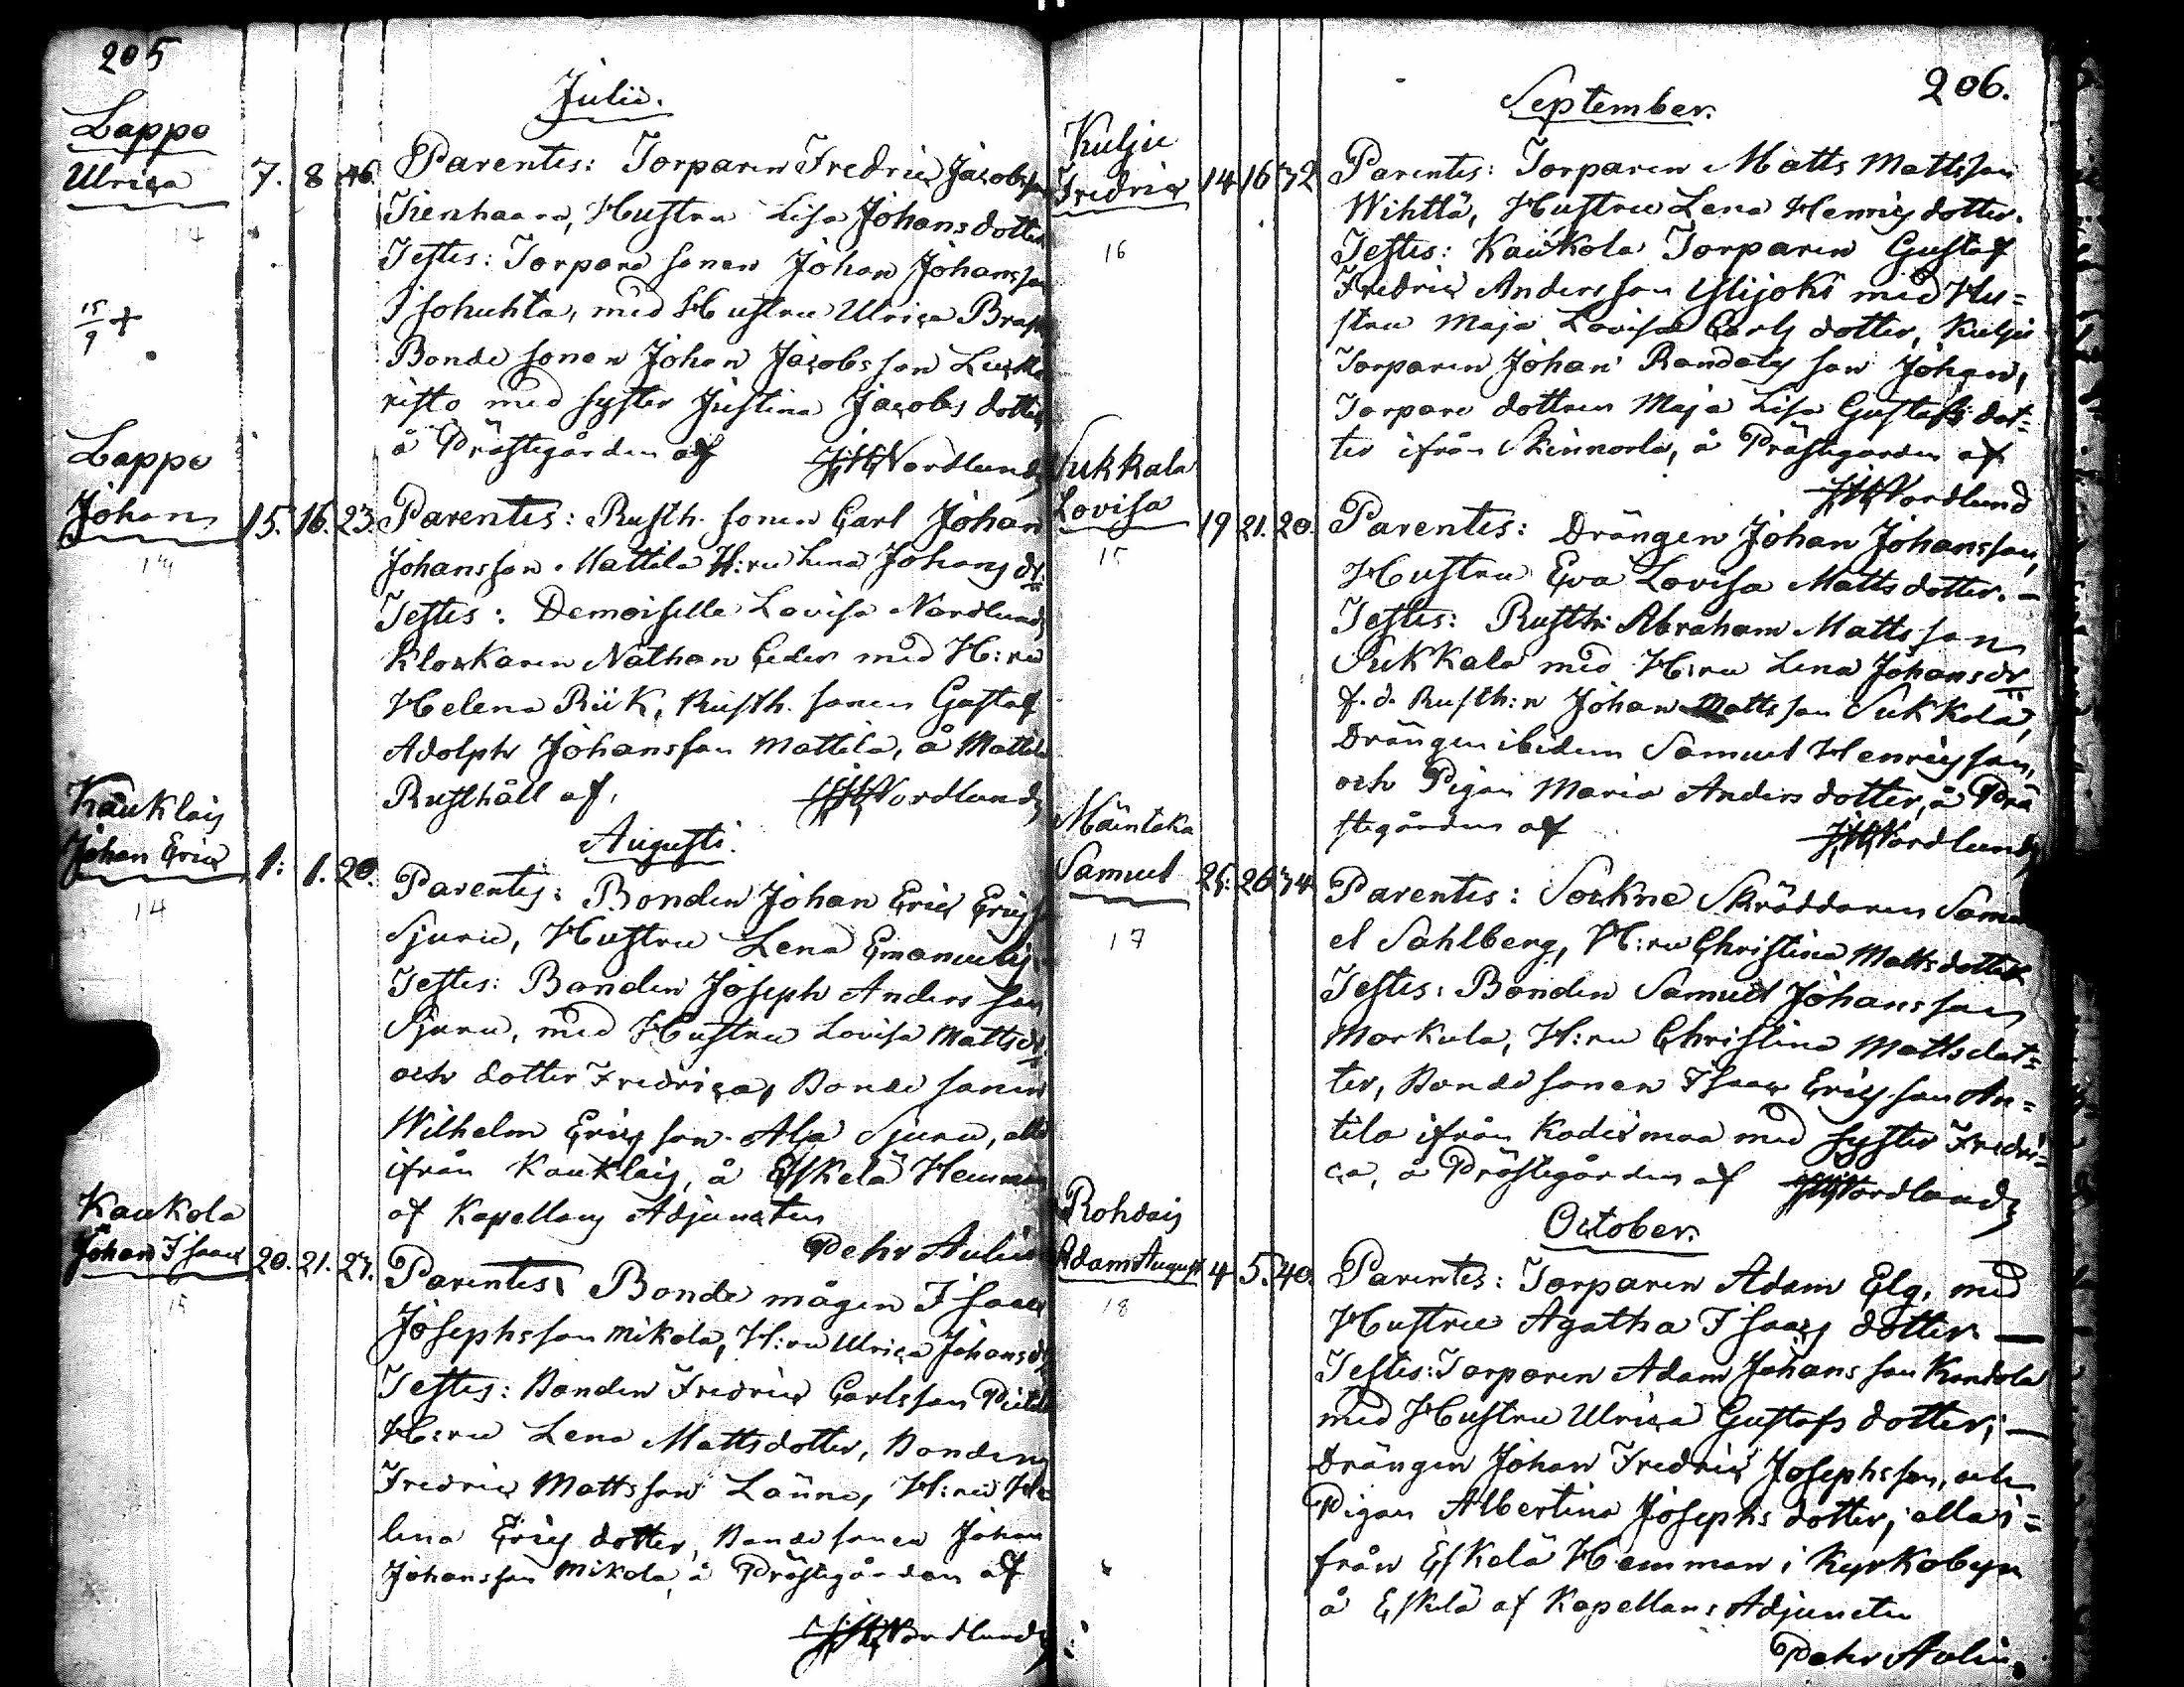 205
Julii.
Lappo
Ulrica 7. 8 46.
Parentes: Torparen Fredric Jacobsson
Tienhaara, Hustru Lisa Johansdotter
Testes: Torpare sonen Johan Johansson
Isohuhta, med Hustru Ulrica Brask
Bonde sonen Johan Jacobsson
risto med syster Justina Jacobs dotter
å Prästegården af Nordlund
17
15/9 +
Lappo
Johan 15. 16. 23.
Parentes: Rusth. sonen Carl Johan
Johansson Mattila H:ru Lena Johans dr:
Testes: Demoiselle Lovisa Nordlund
Klockaren Nathan Ceder med H:ru
Helena Riik, Rusth. sonen Gustaf
Adolph Johansson Mattila, å Mattila
Rusthåll af, Nordlund
Augusti.
Kauklais
Johan Eric 1. 1. 20.
14
Parentes: Bonden Johan Eric Erics
Sjuru, Hustru Lena Emanuels
Testes: Bonden Joseph Anders son
Sjuru, med Hustru Lovisa Mattsdr.
och dotter Fredrica, Bonde sonen
Wilhelm Erics son Ala Sjuru, alla
ifrån Kauklais, å Eskelä Hemman
af Kapellans Adjuncten
Pehr Aulin
Kaukola
Johan Isaac 20. 21. 27.
15
Parentes: Bonde mågen Isaac
Josephsson Mikola, H:ru Ulrica Johans dr
Testes: Bonden Fredric Carlsson
H:ru Lena Mattsdotter, Bonden
Fredric Mattsson Launi, H:ru He
lena Erics dotter, Bonde sonen Johan
Johansson Mikola, å Prästegården af
Nordlund
206.
September.
Kulju
Fredric 14 16 32
16
Parentes: Torparen Matts Mattsson
Wihtlä, Hustru Lena Henrics dotter.
Testes: Kaukola Torparen Gustaf
Fredric Andersson Ylijoki med Hu=
stru Maja Lovisa Carls dotter, Kulju
Torparen Johan Randals son Johan,
Torpare dottren Maja Lisa Gustafs dot=
ter ifrån Skinnarla, å Prästegården af
Nordlund
Sukkala
Lovisa 19 21. 20.
15
Parentes: Drängen Johan Johansson,
Hustru Eva Lovisa Matts dotter. —
Testes: Rusth: Abraham Mattsson
Sukkala med H:ru Lena Johansdr
f. d. Rusth:n Johan Mattsson Sukkola,
Drängen ibidem Samuel Henricsson,
och Pigan Maria Anders dotter, å Prä
stegården af Nordlund
Mäentaka
Samuel 25. 26 34
17
Parentes: Sockne Skräddaren Samu
el Sahlberg, H:ru Christina Mattsdotter
Testes: Bonden Samuel Johansson
Markula, H:ru Christina Mattsdot=
ter, Bonde sonen Isaac Ericsson An=
tila ifrån Kodixmaa med syster Fredri=
ca, å Prästegården af Nordlund
October.
Rohdais
Adam August 4 5. 40.
18
Parentes: Torparen Adam Elg, med
Hustru Agatha Isaacs dotter —
Testes: Torparen Adam Johansson Kandola
med Hustru Ulrica Gustafs dotter; —
Drängen Johan Fredric Josephsson, och
Pigan Albertina Josephs dotter, alla i=
från Eskelä Hemman i Kyrkobyn
å Eskelä af Kapellans Adjuncten
Pehr Aulin.